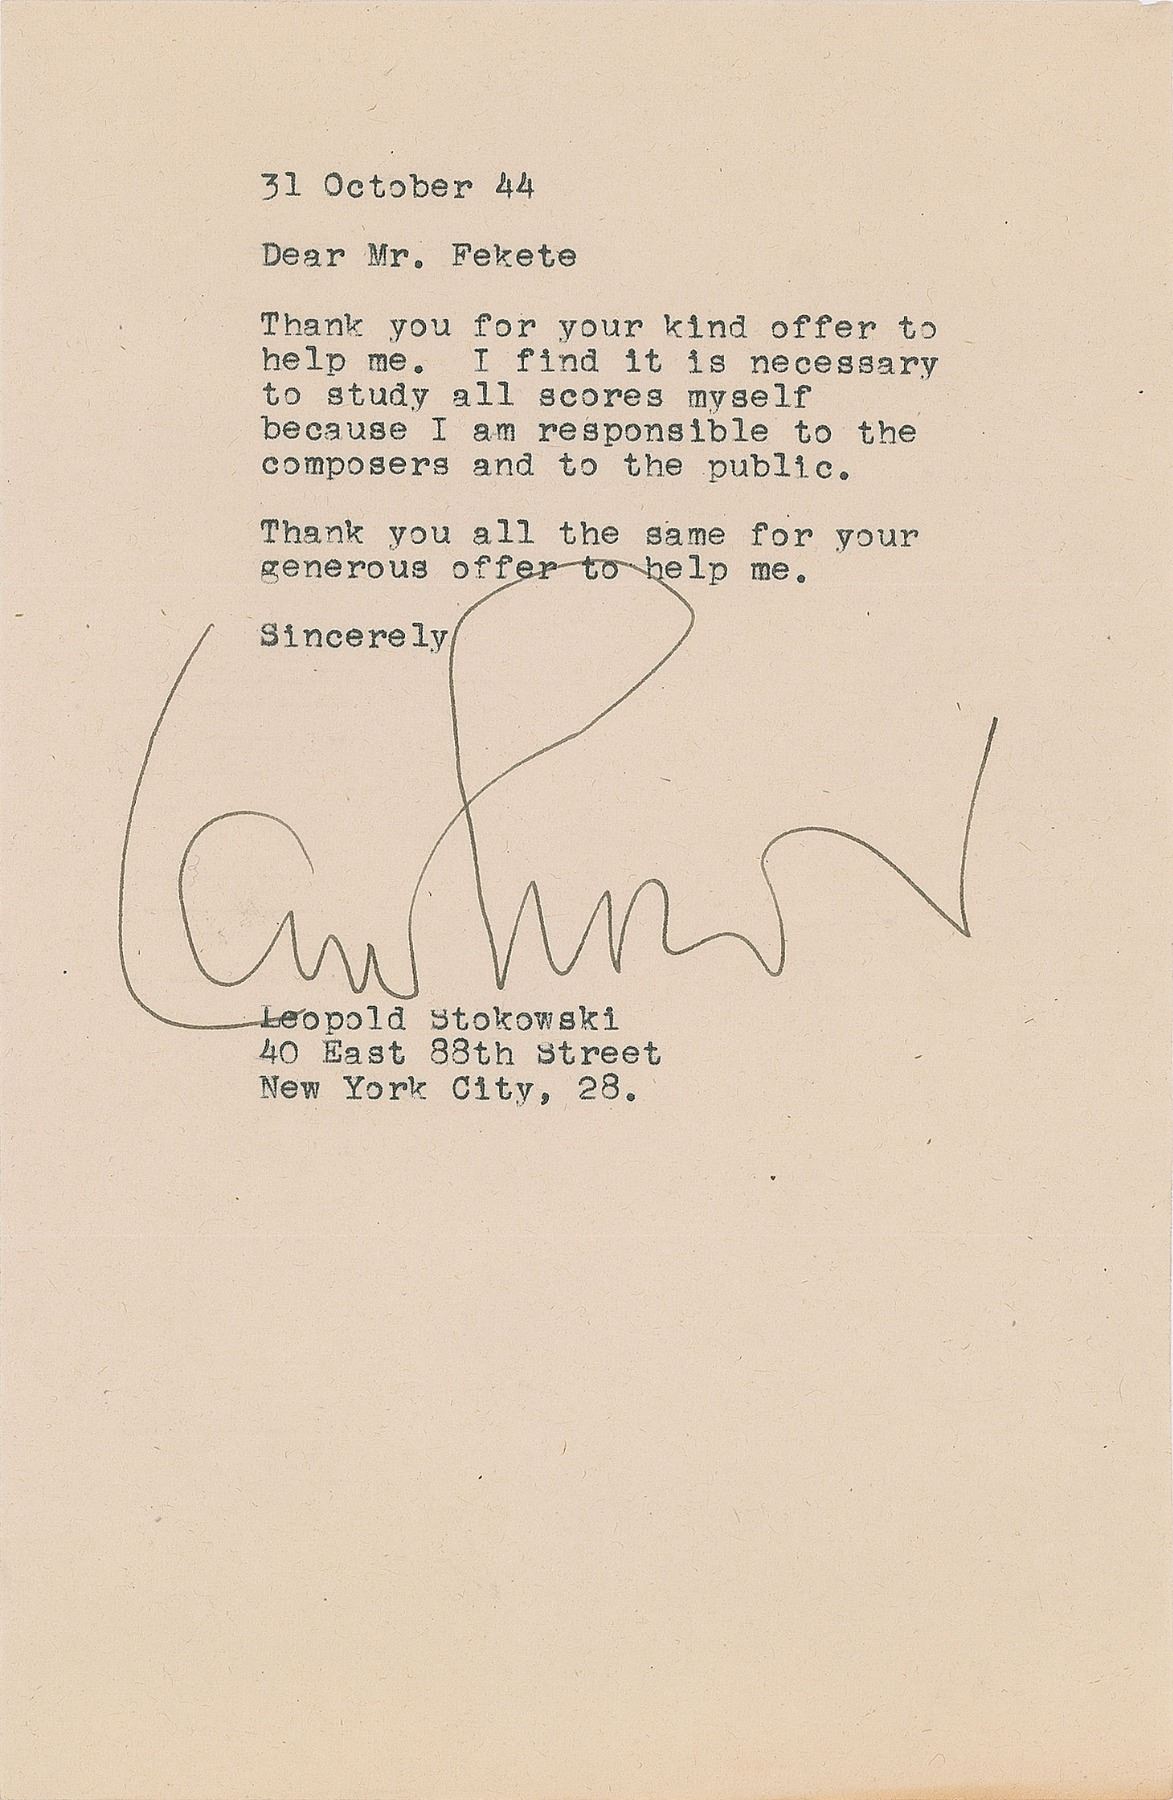 31 October 44
Dear Mr. Fekete
Thank you for your kind offer to
help me.  I find it is necessary
to study all scores myself
because I am responsible to the
composers and to the public.
Thank you all the same for your
generous offer to help me.
Sincerely
Leopold Stokowski
40 East 88th Street
New York City, 28.